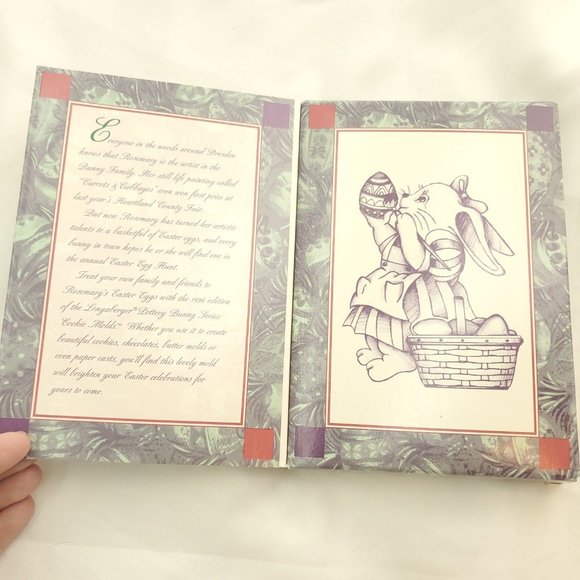 Everyone in the woods around Dresden
knows that Rosemary is the artist in the
Bunny Family. Her still life painting called
"Carrots & Cabbages" even won first prize at
last year's Heartland County Fair.
But now Rosemary has turned her artistic
talents to a basketful of Easter eggs, and every
bunny in town hopes he or she will find one in
the annual Easter Egg Hunt.
Treat your own family and friends to
Rosemary's Easter Eggs with the 1996 edition
of the Longaberger® Pottery Bunny Series
Cookie Molds.™ Whether you use it to create
beautiful cookies, chocolates, butter molds or
even paper casts, you'll find this lovely mold
will brighten your Easter celebrations for
years to come.